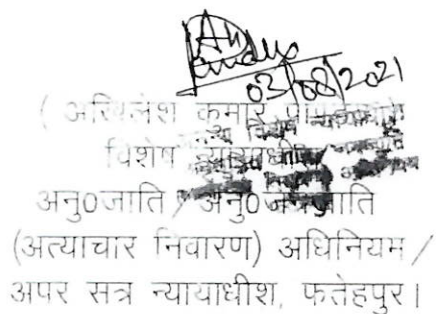 03/08/2021
( अखिलेश कुमार पाण्डेय)
विशेष न्यायाधीश
अनु0जाति / अनु0जनजाति
(अत्याचार निवारण) अधिनियम /
अपर सत्र न्यायाधीश, फतेहपुर।